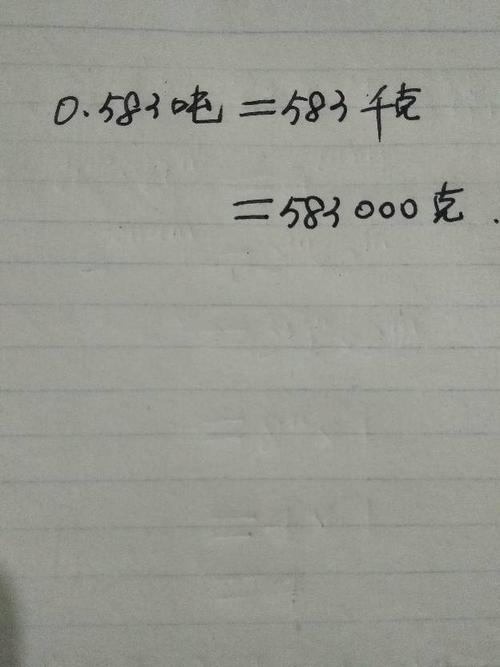 0.583吨=583千克
=583000克.